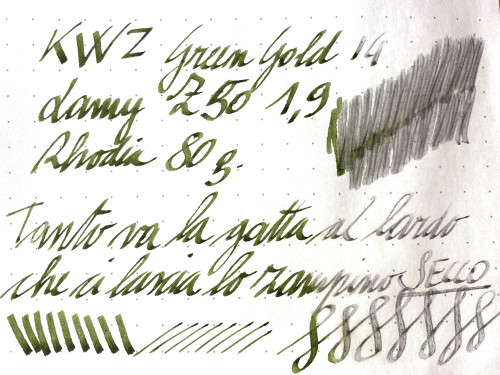 KWZ Green Gold 14
Lamy Z50 1,9
Rhodia 80 g.
Tanto va la gatta al lardo
che ci lascia lo zampino SECCO